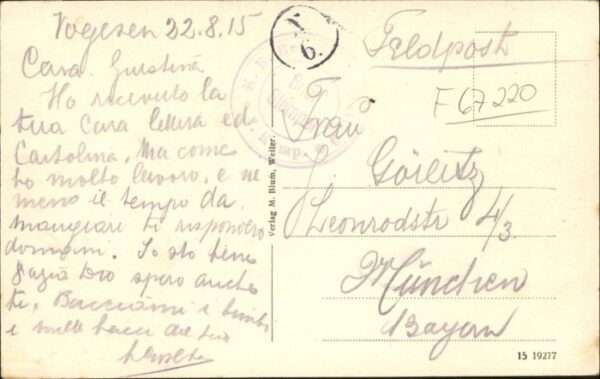 Vogesen 22.8.15
Cara Giustina
Ho ricevuto la
tua Cara lettera ed
Cartolina. Ma come
ho molto lavoro, e ne
meno il tempo da
mangiare ti risponderò
domani. Io sto bene
grazia Dio spero anche
te. Bacciami i bimbi
e molti bacci dal tuo
Feldpost
F 67220
Frau
Görlitz
Leonrodstr 4/3.
München
Bayern
Verlag M. Blum, Weiler.
15 19277